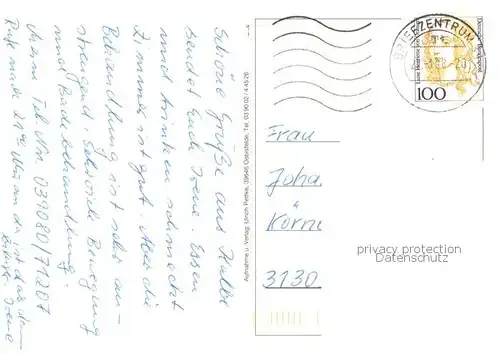 Schöne Grüße aus Kalbe
sendet Euch Irene. Essen
und trinken schmeckt
Zimmer ist gut. Aber die
Behandlung ist sehr an-
strengend. Sehr viele Bewegung
und Badebehandlung.
Meine Tel Nr. 039080/71201
Ruft nach 21 Uhr an da ist das
Irene
Aufnahme u. Verlag: Ulrich Pettke, 39646 Oebisfelde, Tel. 03 90 02 / 4 45 26
BRIEFZENTRUM
Deutsche Bundespost
100
Frau
Joha
Korn
3130
privacy protection
Datenschutz